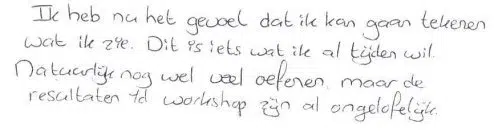 Ik heb nu het gevoel dat ik kan gaan tekenen
wat ik zie. Dit is iets wat ik al tijden wil.
Natuurlijk nog wel veel oefenen, maar de
resultaten vd workshop zijn al ongelofelijk.